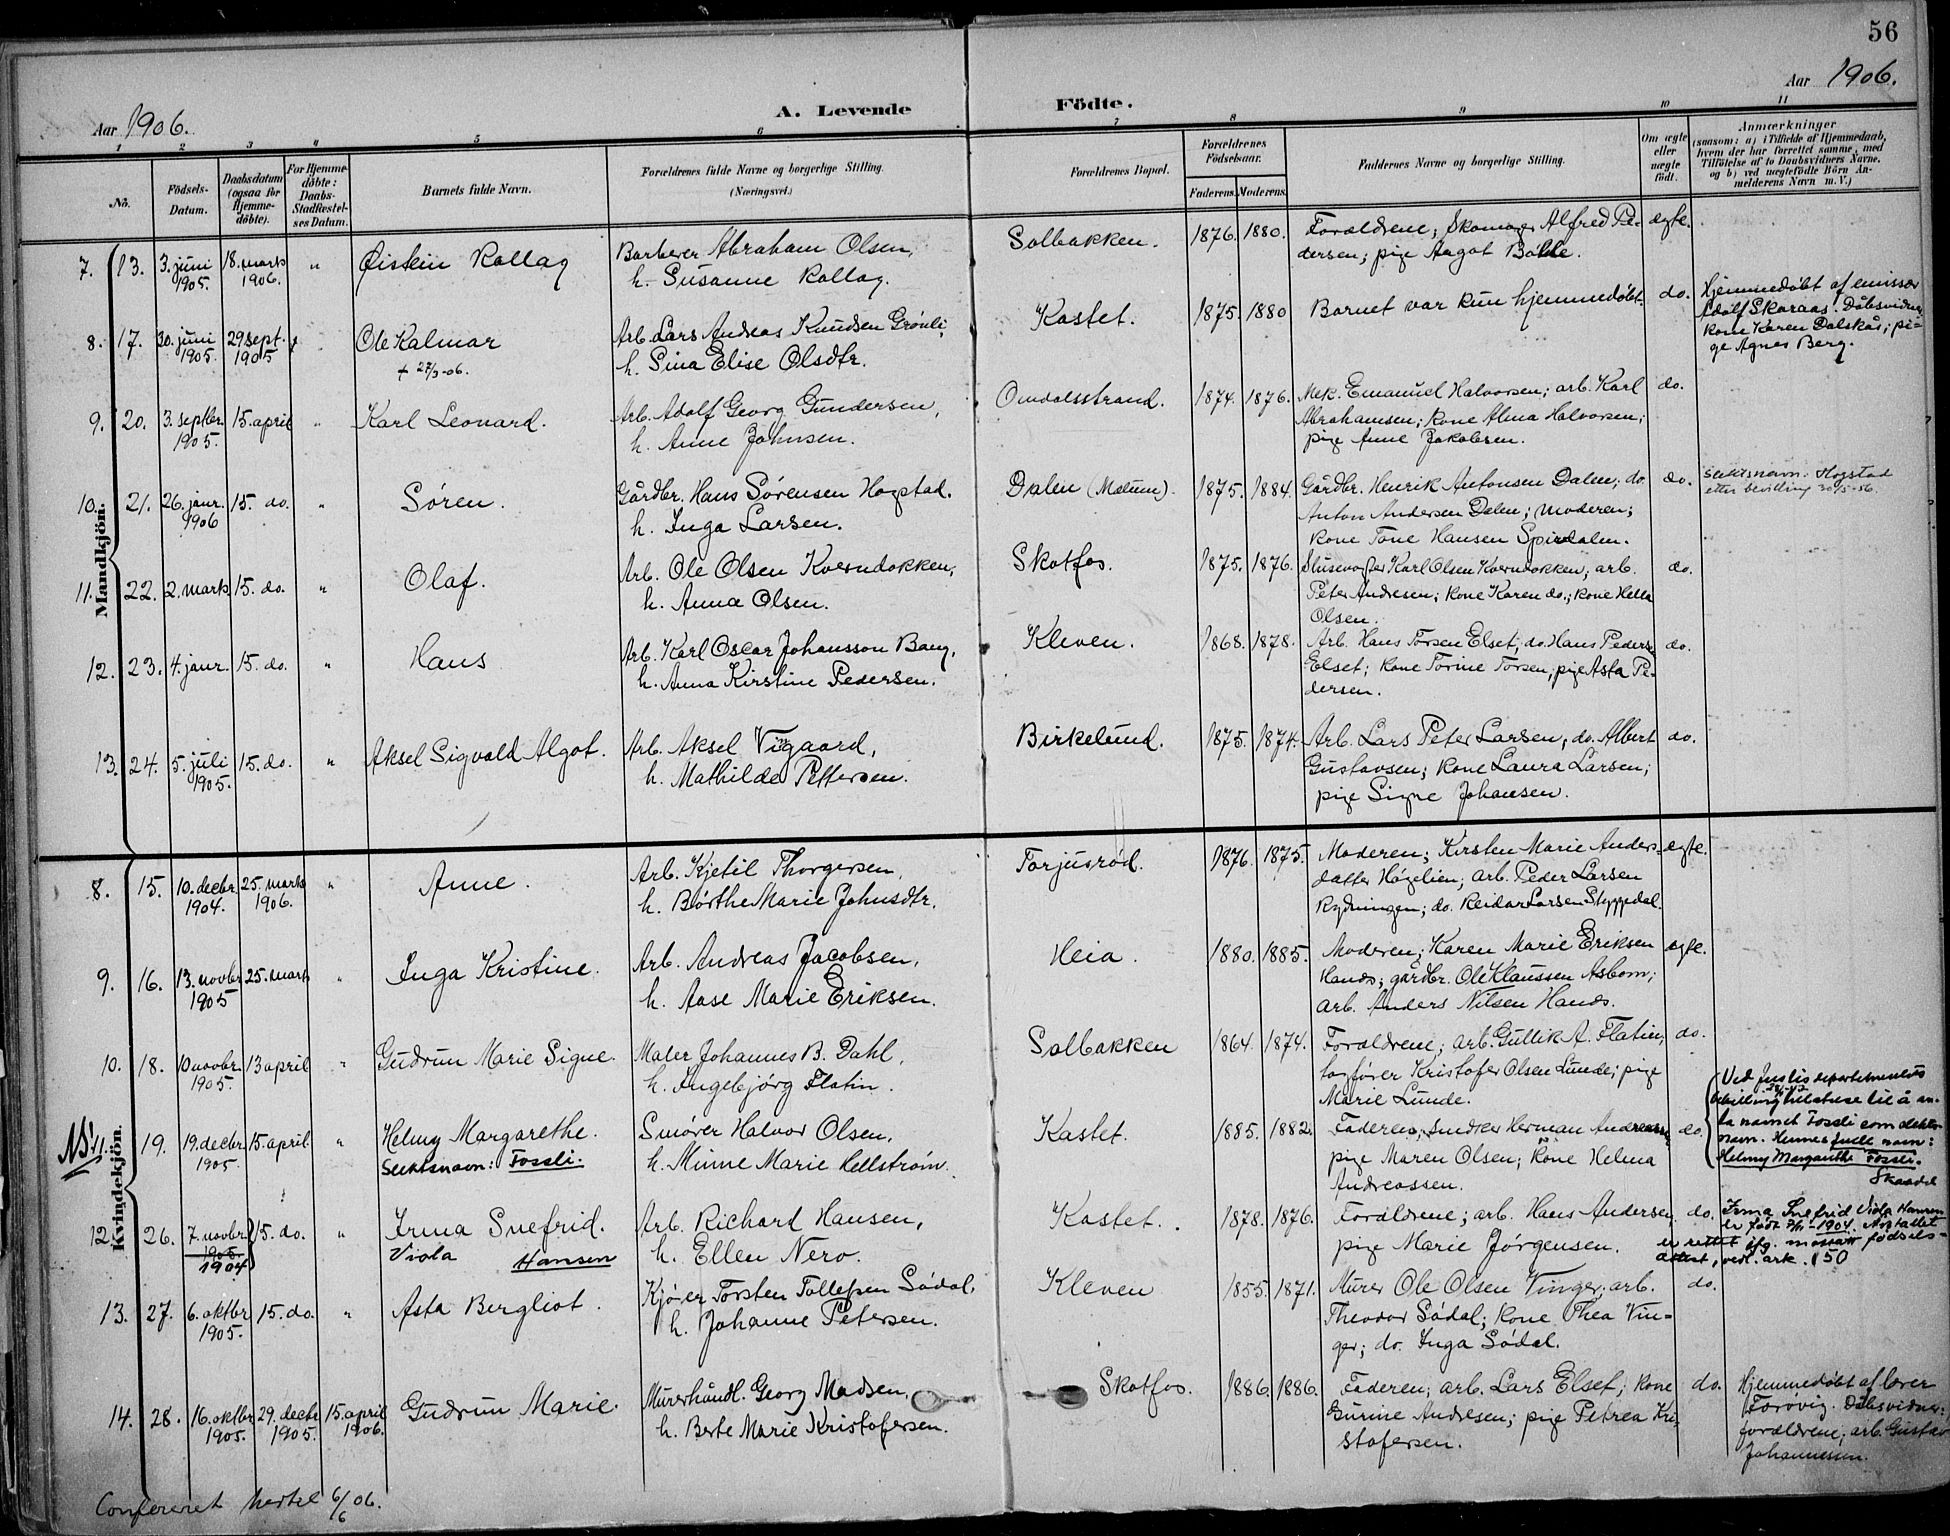 56
Aar 1906.
A. Levende Födte.
Aar 1906.
1 2 3 4 5 6 7 8 9 10 11
No.
Födsels-Datum.
Daabsdatum (ogsaa for Hjemme-döbte).
For Hjemme-döbte: Daabs-Stadfæstel-ses Datum.
Barnets fulde Navn.
Forældrenes fulde Navne og borgerlige Stilling. (Næringsvei.)
Forældrenes Bopæl.
Forældrenes Födselsaar.
Faderens. Moderens.
Faddernes Navne og borgerlige Stilling.
Om ægte eller uægte födt.
Anmærkninger
(saasom: a) i Tilfælde af Hjemmedaab,
hvem der har forrettet samme, med
Tilföielse af to Daabsvidners Navne.
og b) ved uægtefödte Börn An-
melderens Navn m. V.)
Mandkjön.
7. 13. 3. juni 1905. 18. marts 1906. " Øistein Rollag
Barberer Abraham Olsen,
h. Susanne Rollag.
Solbakken. 1876. 1880.
Forældrene; Skomager Alfred Pe-
dersen; pige Aagot Bøhle.
ægte.
8. 17. 30. juni 1905. 29 sept. 1905 Ole Kalmar
+ 27/3-06.
Arb. Lars Andreas Knudsen Grönli,
h. Sina Elise Olsdtr.
Kastet. 1875. 1880
Barnet var kun hjemmedøbt.
do.
Hjemmedøbt af emissær
Adolf Skaraas. Dåbsvidner
kone Karen Dalskås; pi-
ge Agnes Berg.
9. 20. 3. septbr. 1905. 15. april " Karl Leonard.
Arb. Adolf Georg Gundersen,
h. Anne Johnsen.
Omdalsstrand. 1874. 1876.
Mek. Emanuel Halvorsen; arb. Karl
Abrahamsen; kone Alma Halvorsen;
pige Anne Jakobsen.
do.
10. 21. 26. janr. 1906 15. do. " Søren.
Gårdbr. Hans Sørensen Hogstad.
h. Inga Larsen.
Dalen (Mælum). 1875. 1884.
Gårdbr. Henrik Antonsen Dalen; do.
Anton Andersen Dalen; moderen;
kone Tone Hansen Spirdalen.
do.
Slektsnavn: Hogstad
etter bevilling 30/5-56.
11. 22. 2. marts 15. do. " Olaf.
Arb. Ole Olsen Kverndokken,
h. Anna Olsen.
Skotfos. 1875. 1876.
Slusevogter Karl Olsen Kverndokken; arb.
Peter Andresen; kone Karen do.; kone Hella
Olsen.
do.
12. 23. 4. janr. 15. do. " Hans
Arb. Karl Oscar Johansson Bang,
h. Anna Kirstine Pedersen.
Kleven. 1868. 1878.
Arb. Hans Torsen Elset; do. Hans Peders.
Elset; kone Torine Torsen; pige Asta Pe-
dersen.
do.
13. 24. 5. juli 1905. 15. do. " Aksel Sigvald Algot.
Arb. Aksel Viggaard,
h. Mathilde Pettersen.
Birkelund. 1875. 1874.
Arb. Lars Peter Larsen; do. Albert
Gustavsen; kone Laura Larsen;
pige Signe Johansen.
do.
Kvindekjön.
8. 15. 10. decbr 1904. 25. marts 1906. " Anne.
Arb. Kjetil Thorgersen,
h. Børthe Marie Johnsdtr.
Torjusrød. 1876. 1875.
Moderen; Kirsten Marie Anders-
datter Høgelien; arb. Peder Larsen
Rydningen; do. Reidar Larsen Styggedal.
ægte.
9. 16. 13. novbr 1905 25. marts " Inga Kristine.
Arb. Andreas Jacobsen,
h. Aase Marie Eriksen.
Heia. 1880. 1885.
Moderen; Karen Marie Eriksen
Hanås; gårdbr. Ole Klaussen Asbom;
arb. Anders Nilsen Hanås.
ægte.
10. 18. 10 novbr. 1905. 13 april " Gudrun Marie Signe.
Maler Johannes B. Dahl,
h. Ingebjörg Flatin.
Solbakken 1864. 1874.
Forældrene; arb. Gullik A. Flatin;
togfører Kristofer Olsen Lunde; pige
Marie Lunde.
do.
NB! 11. 19. 19. decbr 1905. 15 april " Helmy Margarethe.
Slektsnavn: Fossli.
Smører Halvor Olsen,
h. Minne Marie Hellström.
Kastet. 1885. 1882.
Faderen; snedker Herman Andreassen
pige Maren Olsen; kone Helma
Andreassen.
do.
Ved Justisdepartementets
bevilling tillatelse til å an-
ta navnet Fossli som slekts-
navn. Hennes fulle navn:
Helmy Margarethe Fossli.
12. 26. 7. novbr 1905. 1904 15. do. " Irma Snefrid.
Viola Hansen
Arb. Richard Hansen,
h. Ellen Nero.
Kastet. 1878. 1876.
Forældrene; arb. Hans Andersen
pige Marie Jörgensen.
do.
Irma Snefrid Viola Hansen
er født 7/11-1904. Årstallet
er rettet ifg. mottatt fødsels-
attest, vedl. ark. 150
13. 27. 6. oktbr 1905. 15. do. " Asta Bergliot.
Kjörer Torsten Tollefsen Södal,
h. Johanne Petersen.
Kleven 1855. 1871.
Murer Ole Olsen Vinger; arb.
Theodor Södal; kone Thea Vin-
ger; do. Inga Södal.
do.
14. 28. 16. oktbr 1905. 29. decbr 1905. 15. april 1906. Gudrun Marie.
Murerhåndl. Georg Madsen,
h. Berte Marie Kristofersen.
Skotfos. 1886. 1886.
Faderen; arb. Lars Elset; kone
Gurine Andresen; pige Petrea Kri-
stofersen.
do.
Hjemmedøbt af lærer
Forovig. Dåbsvidner:
forældrene; arb. Gustav
Johannessen.
Confereret hertil 6/6 06.